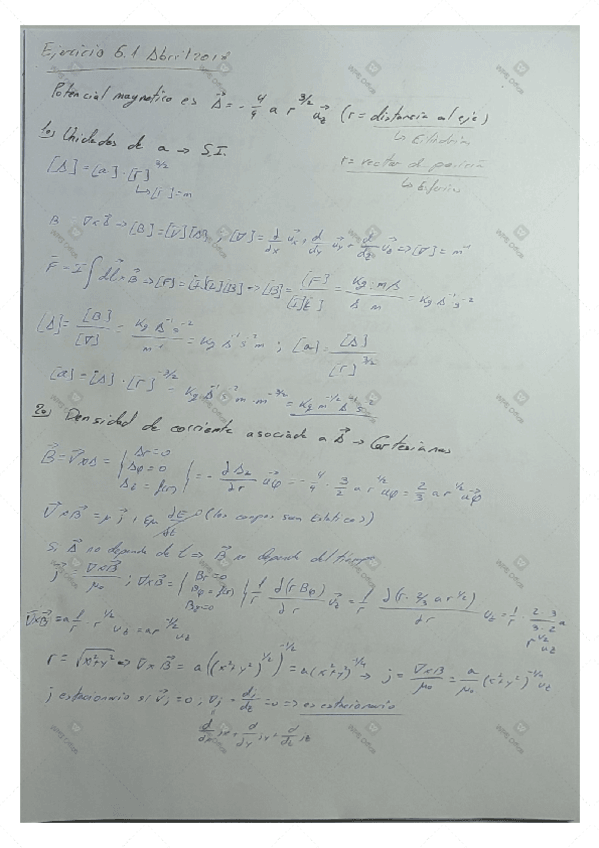 Ejercicio 6.1 Abril 2018
Potencial magnetico es A = - 4/9 a r^3/2 u_z (r = distancia al eje)
↳ Cilindrica
r = vector de posición
↳ Esferica
1o) Unidades de a → S.I.
[A] = [a] · [r]^3/2
↳ [r] = m
B = ∇xA → [B] = [∇][A] ; [∇] = d/dx u_x + d/dy u_y + d/dz u_z => [∇] = m^-1
F = I ∫ dl x B => [F] = [I][L][B] => [B] = [F]/[I][L] = = Kg A^-1 s^-2
[A] = [B]/[∇] = Kg A^-1 s^-2 / m^-1 = Kg A^-1 s^-2 m ; [a] = [A]/[r]^3/2
[a] = [A] · [r]^-3/2 = Kg A^-1 s^-2 m · m^-3/2 = Kg m^-1/2 A^-1 s^-2
2o) Densidad de corriente asociada a A → Cartesianas
B = ∇xA = { Ar = 0 Aφ = 0 Az = f(r) } = - dAz/dr uφ = - 4/9 · 3/2 a r^1/2 uφ = 2/3 a r^1/2 uφ
∇xB = μ j + εμ dE/dt (los campos son Estaticos)
Si A no depende de t => B no depende del tiempo
j = ∇xB/μo ; ∇xB = { Br = 0 Bφ = f(r) Bz = 0 } 1/r d(r Bφ)/dr u_z = 1/r d(r · 2/3 a r^1/2)/dr u_z = 1/r · 2·3/3·2 a r^1/2 u_z
∇xB = a 1/r · r^1/2 u_z = a r^-1/2 u_z
r = √x²+y² => ∇xB = a((x²+y²)^1/2)^-1/2 = a(x²+y²)^-1/4 → j = ∇xB/μo = a/μo (x²+y²)^-1/4 u_z
j estacionario si ∇j = 0 ; = 0 => es estacionario
d/dx jx + d/dy jy + d/dz jz